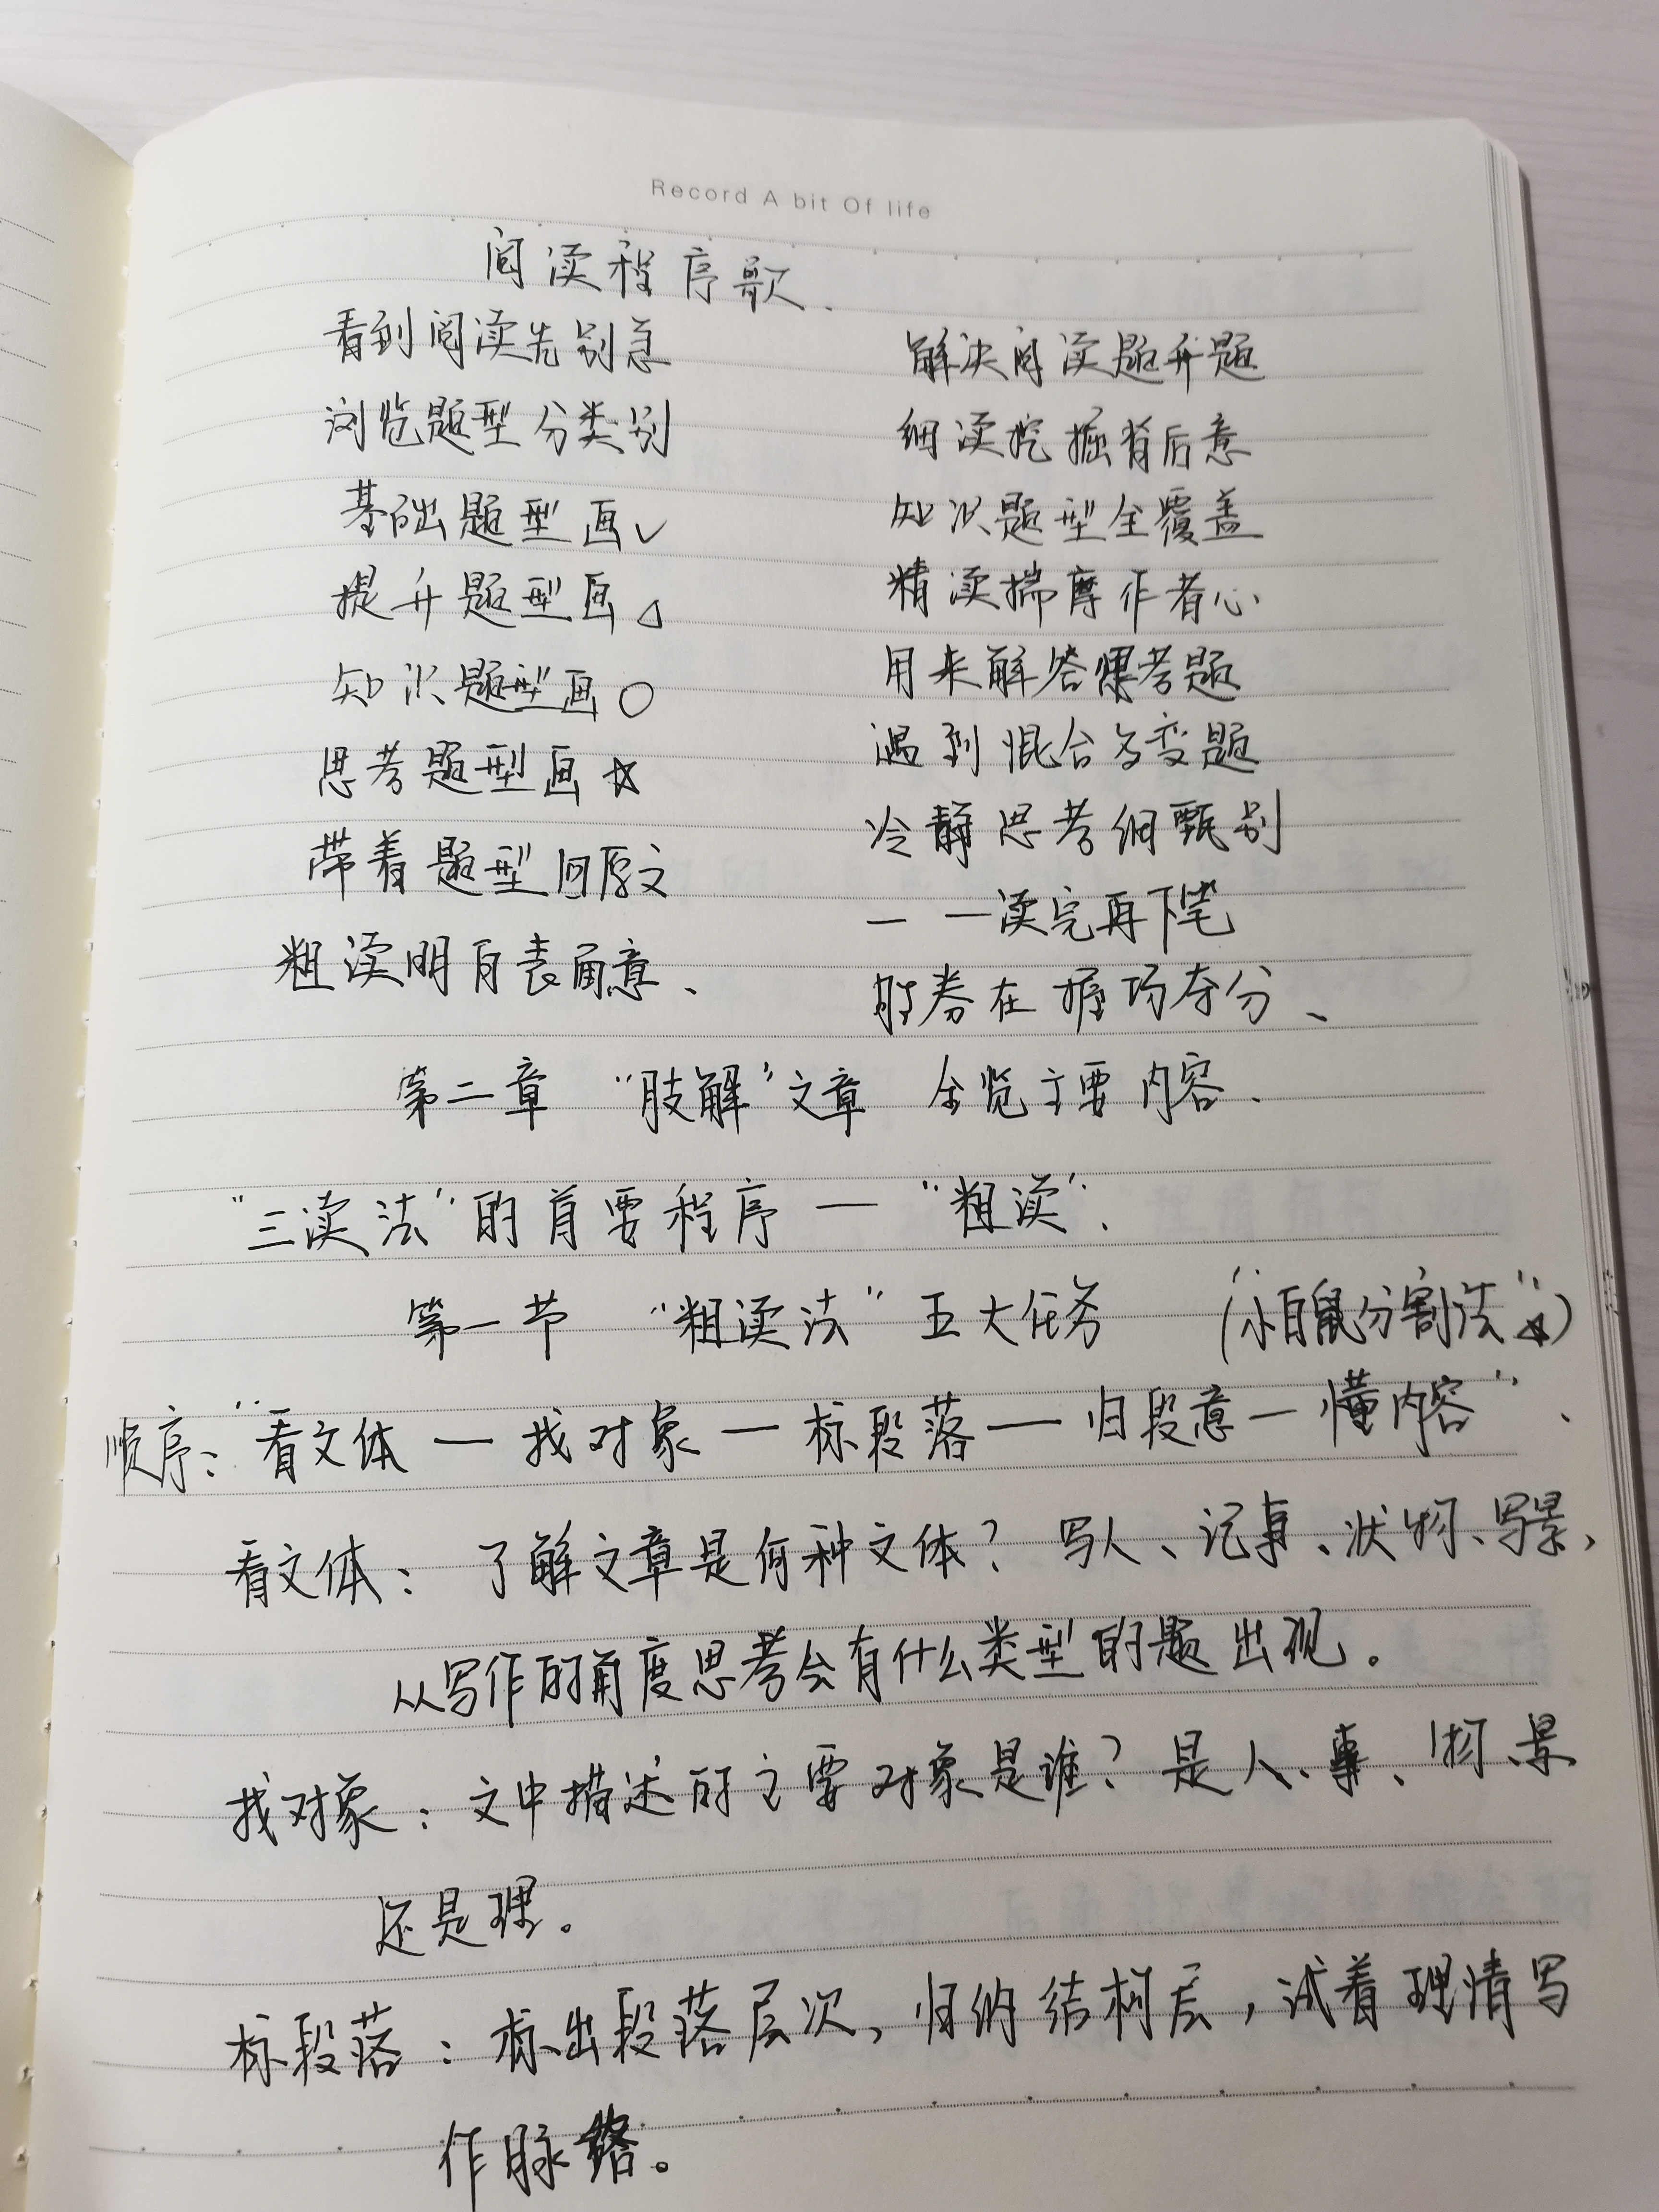 Record A bit Of life
阅读程序歌.
看到阅读先别急
浏览题型分类别
基础题型画√
提升题型画△
知识题型画○
思考题型画☆
带着题型回原文
粗读明白表面意、
解决阅读题升题
细读挖掘背后意
知识题型全覆盖
精读揣摩作者心
用来解答思考题
遇到混合多变题
冷静思考细甄别
一一读完再下笔
胜券在握巧夺分、
第二章 “肢解”文章 全览主要内容.
“三读法”的首要程序 — “粗读”.
第一节 “粗读法” 五大任务 (“小白鼠分割法”☆)
顺序:“看文体 — 找对象 — 标段落 — 归段意 — 懂内容”.
看文体: 了解文章是何种文体? 写人、记事、状物、写景,
从写作的角度思考会有什么类型的题出现。
找对象: 文中描述的主要对象是谁? 是人、事、物、景
还是理。
标段落: 标出段落层次, 归纳结构层, 试着理清写
作脉络。